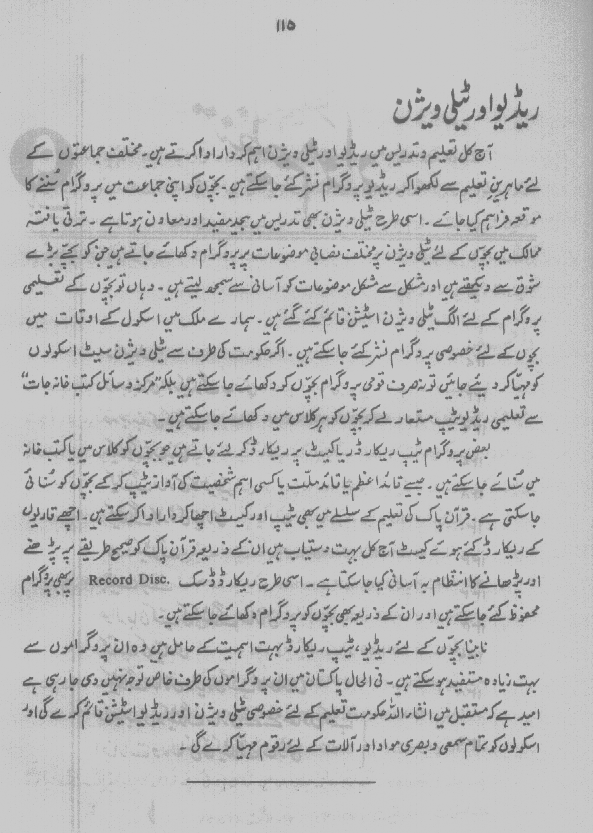 ۱۱۵
ریڈیو اور ٹیلی ویژن
آج کل تعلیم و تدریس میں ریڈیو اور ٹیلی ویژن اہم کردار ادا کرتے ہیں۔ مختلف جماعتوں کے
لئے ماہرین تعلیم سے لکھوا کر ریڈیو پروگرام نشر کئے جا سکتے ہیں۔ بچوں کو اپنی جماعت میں پروگرام سننے کا
موقعہ فراہم کیا جائے۔ اسی طرح ٹیلی ویژن بھی تدریس میں بیحد مفید اور معاون ہوتا ہے۔ ترقی یافتہ
ممالک میں بچوں کے لئے ٹیلی ویژن پر مختلف نصابی موضوعات پر پروگرام دکھائے جاتے ہیں جن کو بچے بڑے
شوق سے دیکھتے ہیں اور مشکل سے مشکل موضوعات کو آسانی سے سمجھ لیتے ہیں۔ وہاں تو بچوں کے تعلیمی
پروگرام کے لئے الگ ٹیلی ویژن اسٹیشن قائم کئے گئے ہیں۔ ہمارے ملک میں اسکول کے اوقات میں
بچوں کے لئے خصوصی پروگرام نشر کئے جا سکتے ہیں۔ اگر حکومت کی طرف سے ٹیلی ویژن سیٹ اسکولوں
کو مہیا کر دیئے جائیں تو نہ صرف قومی پروگرام بچوں کو دکھائے جا سکتے ہیں بلکہ "مرکز وسائل کتب خانہ جات"
سے تعلیمی ریڈیو ٹیپ مستعار لے کر بچوں کو ہر کلاس میں دکھائے جا سکتے ہیں۔
بعض پروگرام ٹیپ ریکارڈر یا کیسٹ پر ریکارڈ کر لئے جاتے ہیں جو بچوں کو کلاس میں یا کتب خانہ
میں سنائے جا سکتے ہیں۔ جیسے قائد اعظم یا قائد ملت یا کسی اہم شخصیت کی آواز ٹیپ کر کے بچوں کو سنائی
جا سکتی ہے۔ قرآن پاک کی تعلیم کے سلسلے میں بھی ٹیپ اور کیسٹ اچھا کردار ادا کر سکتے ہیں۔ اچھے قاریوں
کے ریکارڈ کئے ہوئے کیسٹ آج کل بہت دستیاب ہیں ان کے ذریعہ قرآن پاک کو صحیح طریقے پر پڑھنے
اور پڑھانے کا انتظام بہ آسانی کیا جا سکتا ہے۔ اسی طرح ریکارڈ ڈسک Record Disc. پر بھی پروگرام
محفوظ کئے جا سکتے ہیں اور ان کے ذریعہ بھی بچوں کو پروگرام دکھائے جا سکتے ہیں۔
نابینا بچوں کے لئے ریڈیو، ٹیپ ریکارڈ بہت اہمیت کے حامل ہیں وہ ان پروگراموں سے
بہت زیادہ مستفید ہو سکتے ہیں۔ فی الحال پاکستان میں ان پروگراموں کی طرف خاص توجہ نہیں دی جا رہی ہے
امید ہے کہ مستقبل میں انشاءاللہ حکومت تعلیم کے لئے خصوصی ٹیلی ویژن اور ریڈیو اسٹیشن قائم کرے گی اور
اسکولوں کو تمام سمعی و بصری مواد اور آلات کے لئے رقوم مہیا کرے گی۔